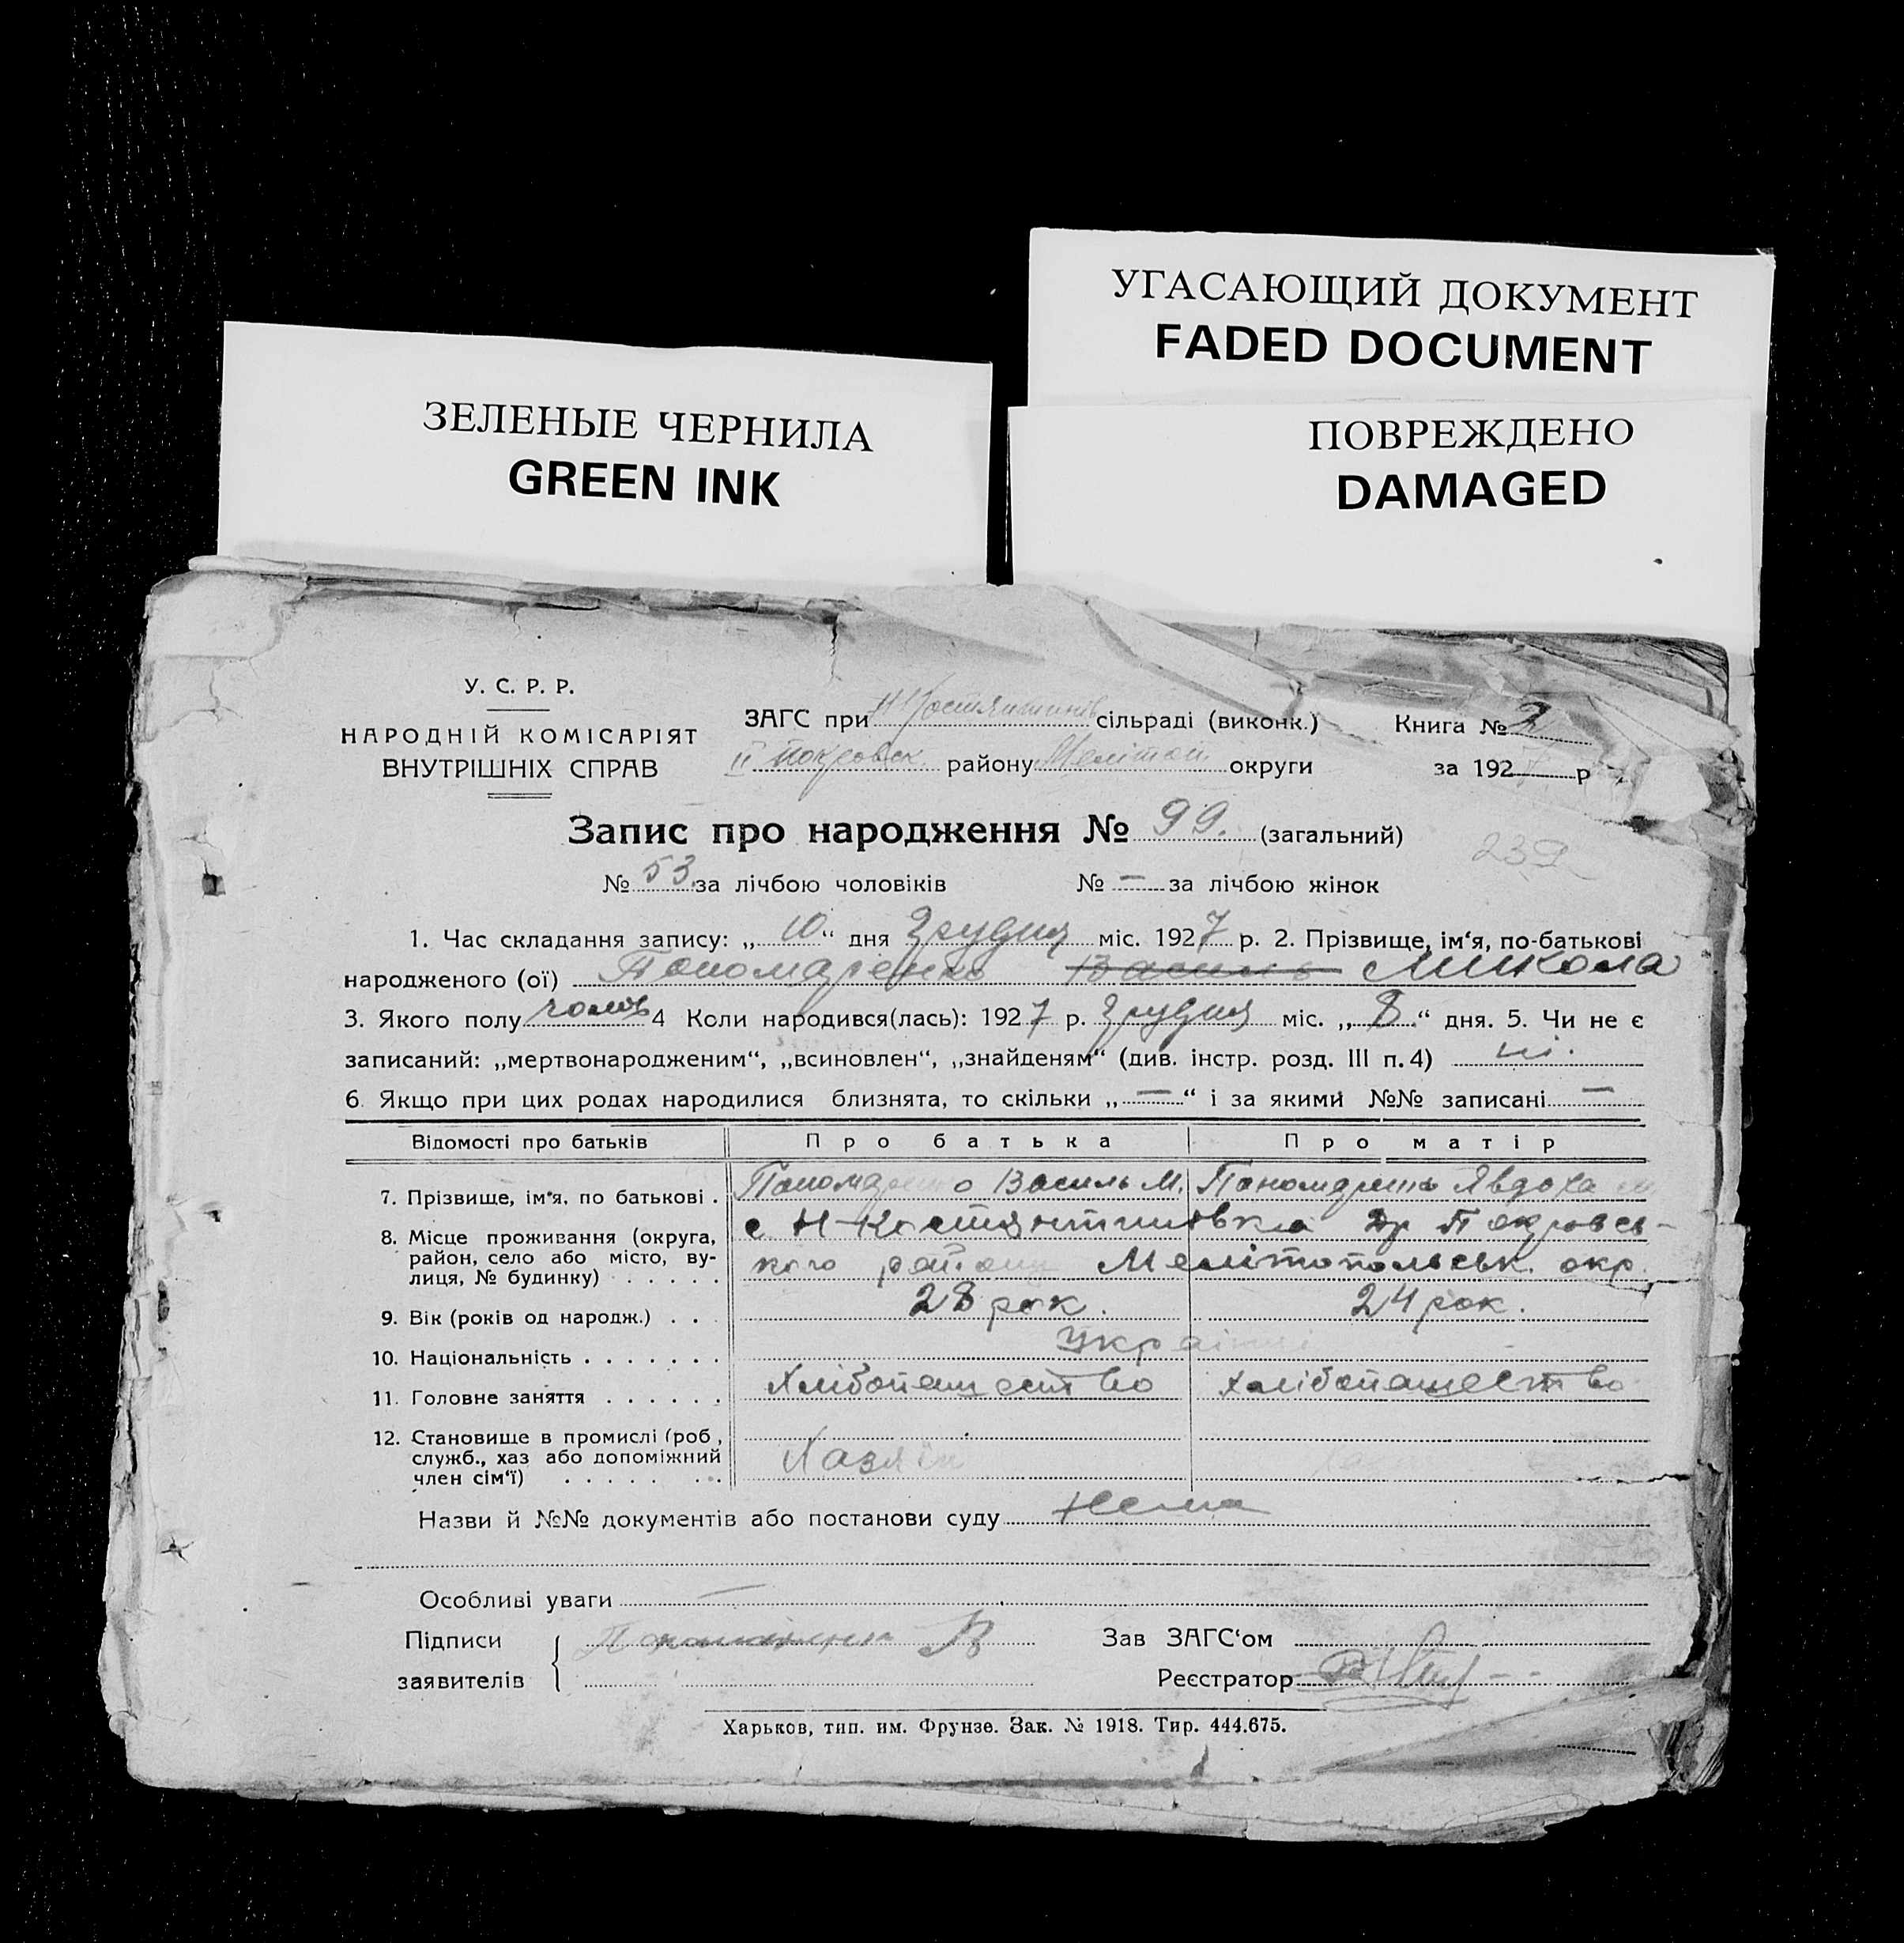 УГАСАЮЩИЙ ДОКУМЕНТ
FADED DOCUMENT
ЗЕЛЕНЫЕ ЧЕРНИЛА
GREEN INK
ПОВРЕЖДЕНО
DAMAGED
У. С. Р. Р.
НАРОДНІЙ КОМІСАРІЯТ
ВНУТРІШНІХ СПРАВ
ЗАГС при сільраді (виконк.)
ІІ Покровск району Мелітоп округи
Книга № 2
за 192 р
Запис про народження № 99. (загальний)
239
№ 53 за лічбою чоловіків № — за лічбою жінок
1. Час складання запису: „ 10 “ дня Грудня міс. 1927 р. 2. Прізвище, ім‘я, по-батькові
народженого (ої) Пономаренко Василь Микола
3. Якого полу чолов 4 Коли народився(лась): 1927 р. Грудня міс. „ 8 “ дня. 5. Чи не є
записаний: „мертвонародженим“, „всиновлен“, „знайденям“ (див. інстр. розд. III п. 4) ні.
6. Якщо при цих родах народилися близнята, то скільки „ — “ і за якими №№ записані —
Відомості про батьків Про батька Про матір
7. Прізвище, ім‘я, по батькові . Пономаренко Василь М. Пономаренко Явдоха
8. Місце проживання (округа, район, село або місто, ву-лиця, № будинку) . . . . .
с. Н-Костянтинівка Др Покровсь-
кого району Мелітопольськ. окр.
9. Вік (років од народж.) . . . 28 рок. 24 рок.
10. Національність . . . . . . . Українці
11. Головне заняття . . . . . . Хлібопашество хлібопашество
12. Становище в промислі (роб., служб., хаз або допоміжний член сім‘ї) . . . . . . . .
Хазяїн
Назви й №№ документів або постанови суду Нема
Особливі уваги —
Підписи
заявителів
Пономаренко В
Зав ЗАГС‘ом
Реєстратор
Харьков, тип. им. Фрунзе. Зак. № 1918. Тир. 444.675.